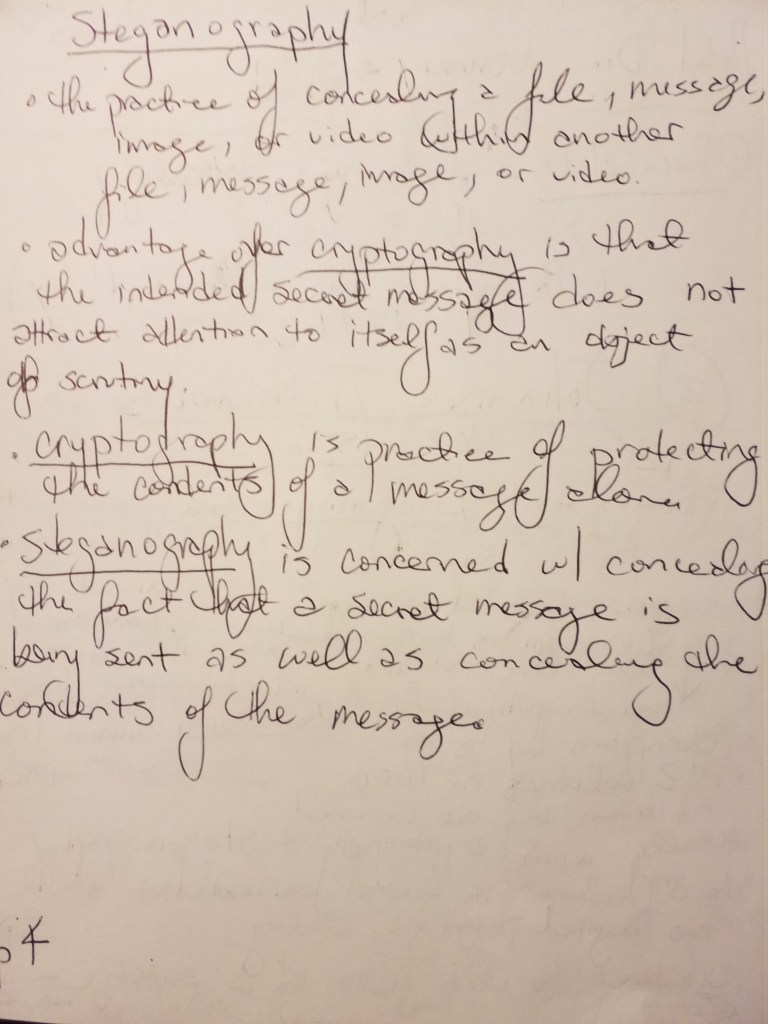 Steganography
• the practice of concealing a file, message,
image, or video within another
file, message, image, or video.
• advantage over cryptography is that
the intended secret message does not
attract attention to itself as an object
of scrutiny.
• cryptography is practice of protecting
the contents of a message alone
• steganography is concerned w/ concealing
the fact that a secret message is
being sent as well as concealing the
contents of the message.
p 4